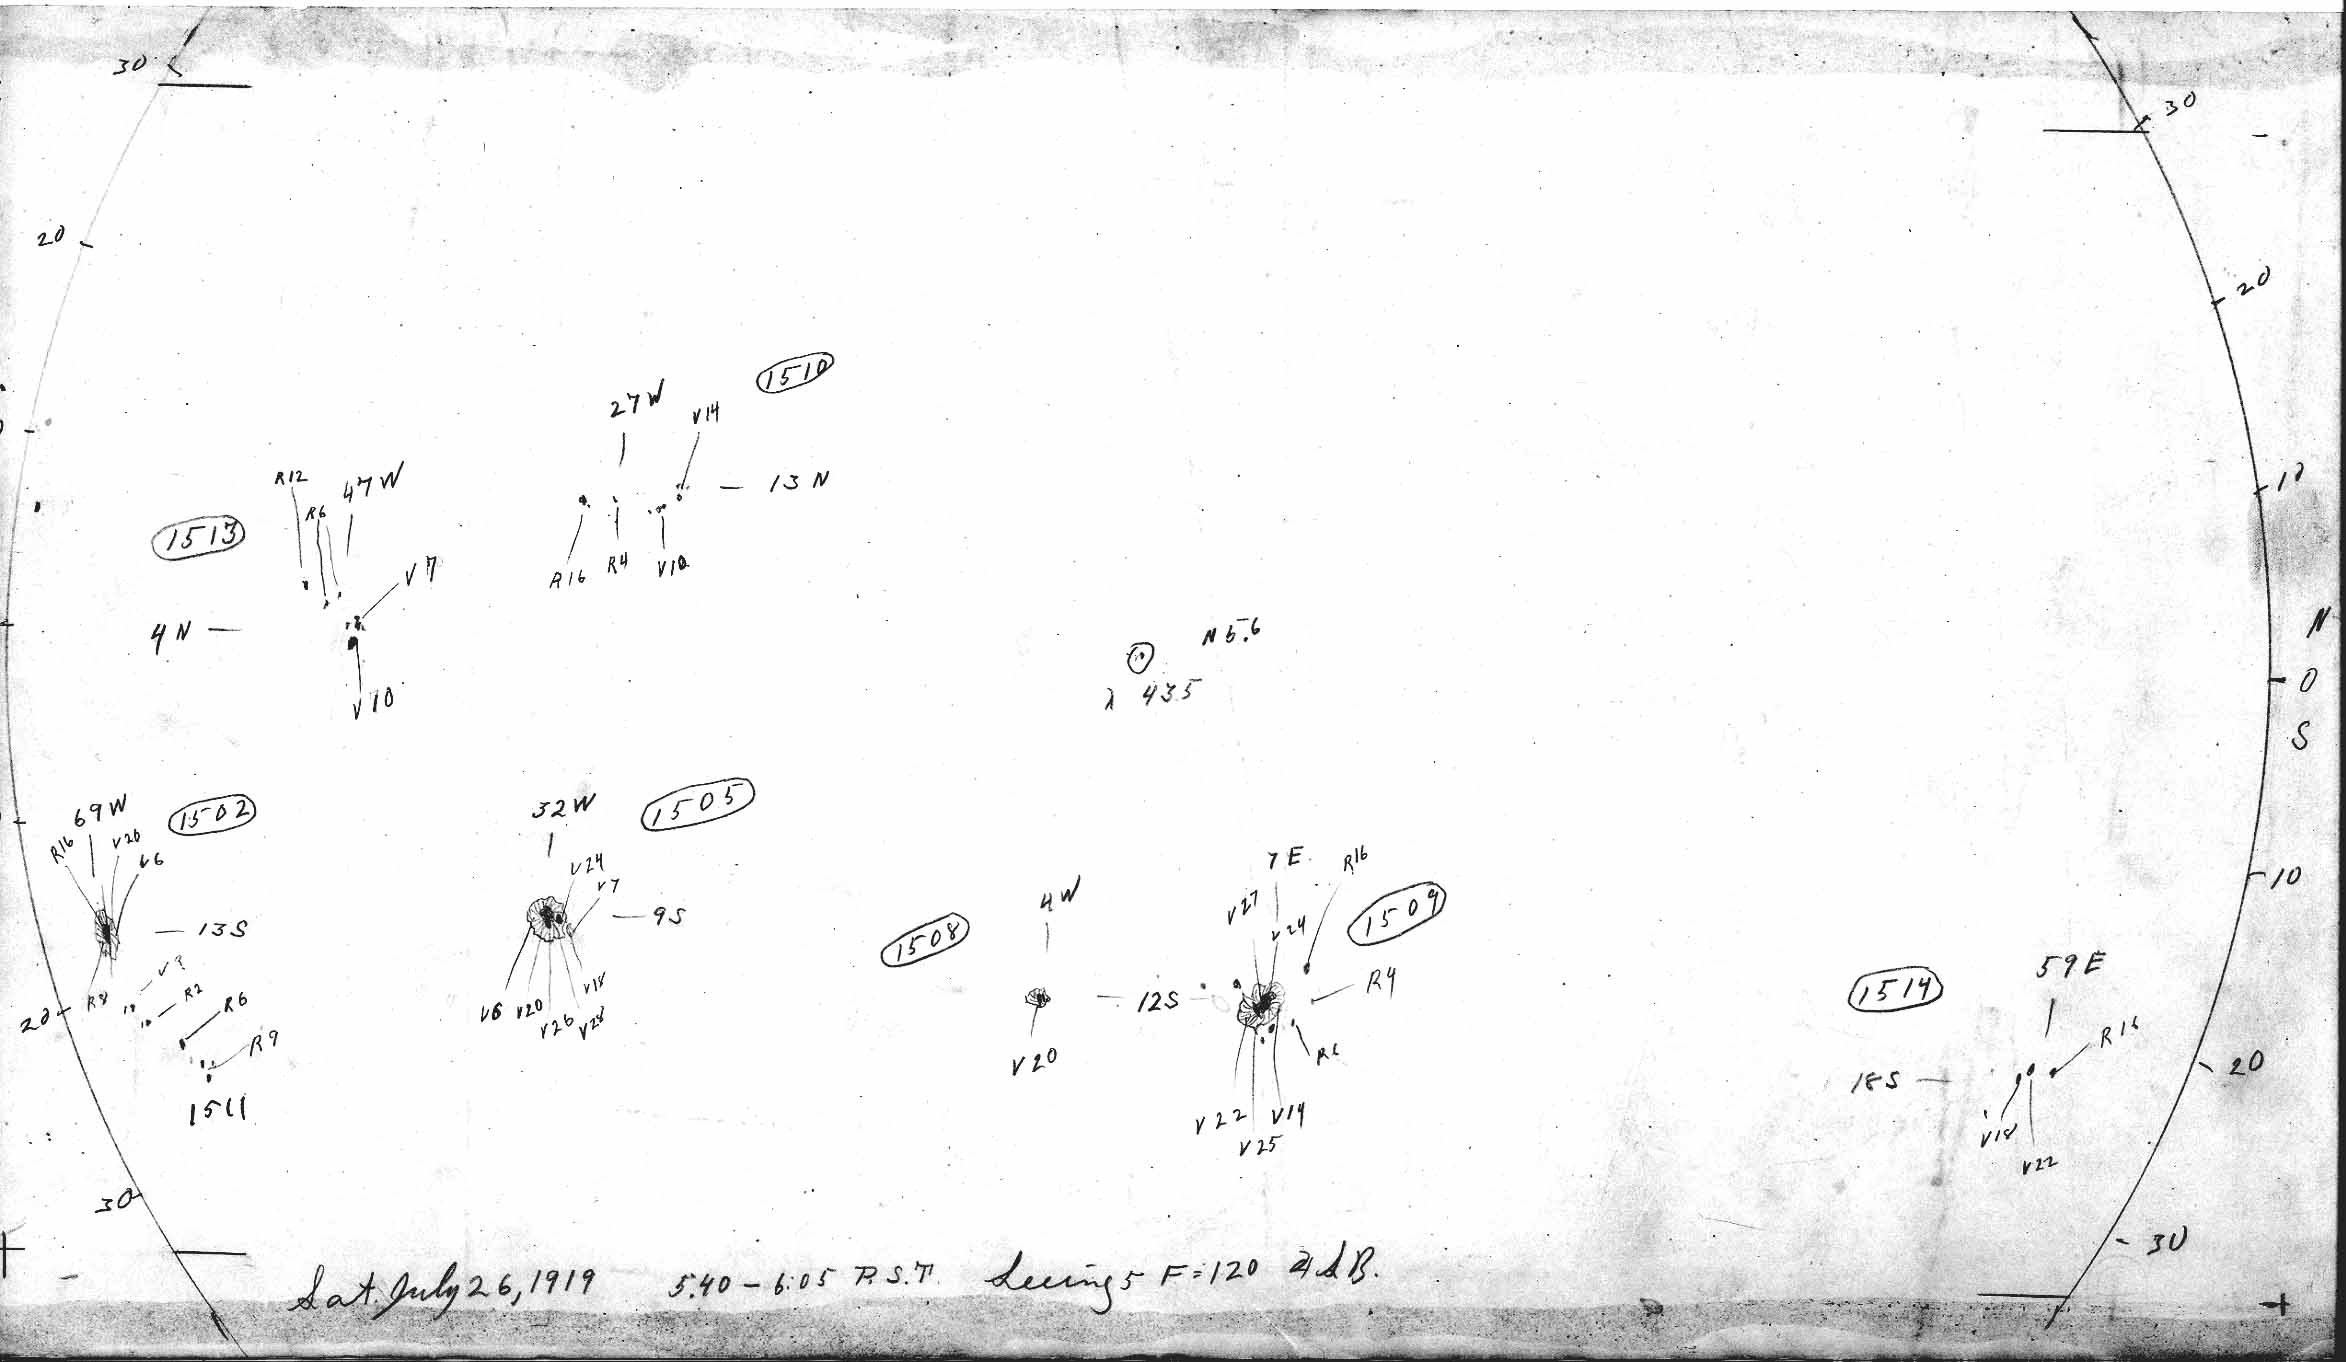 30
30
20
20
1510
27W
V14
R12
47W
R6
13N
10
1513
V7
R16
R4
V10
4N
N 5.6
N
λ 435
0
V10
S
69W
1502
32W
1505
R16
V20
V6
V24
7E
R16
V7
10
4W
V27
1509
9S
13S
V24
1508
59E
V9
R4
1514
R8
R2
V18
12S
R6
V6
V20
20
V26
V28
R16
R9
V20
R6
20
18S
1511
V22
V14
V18
V25
V22
30
30
Sat. July 26, 1919 5:40 - 6:05 P.S.T. Seeing 5 F=120